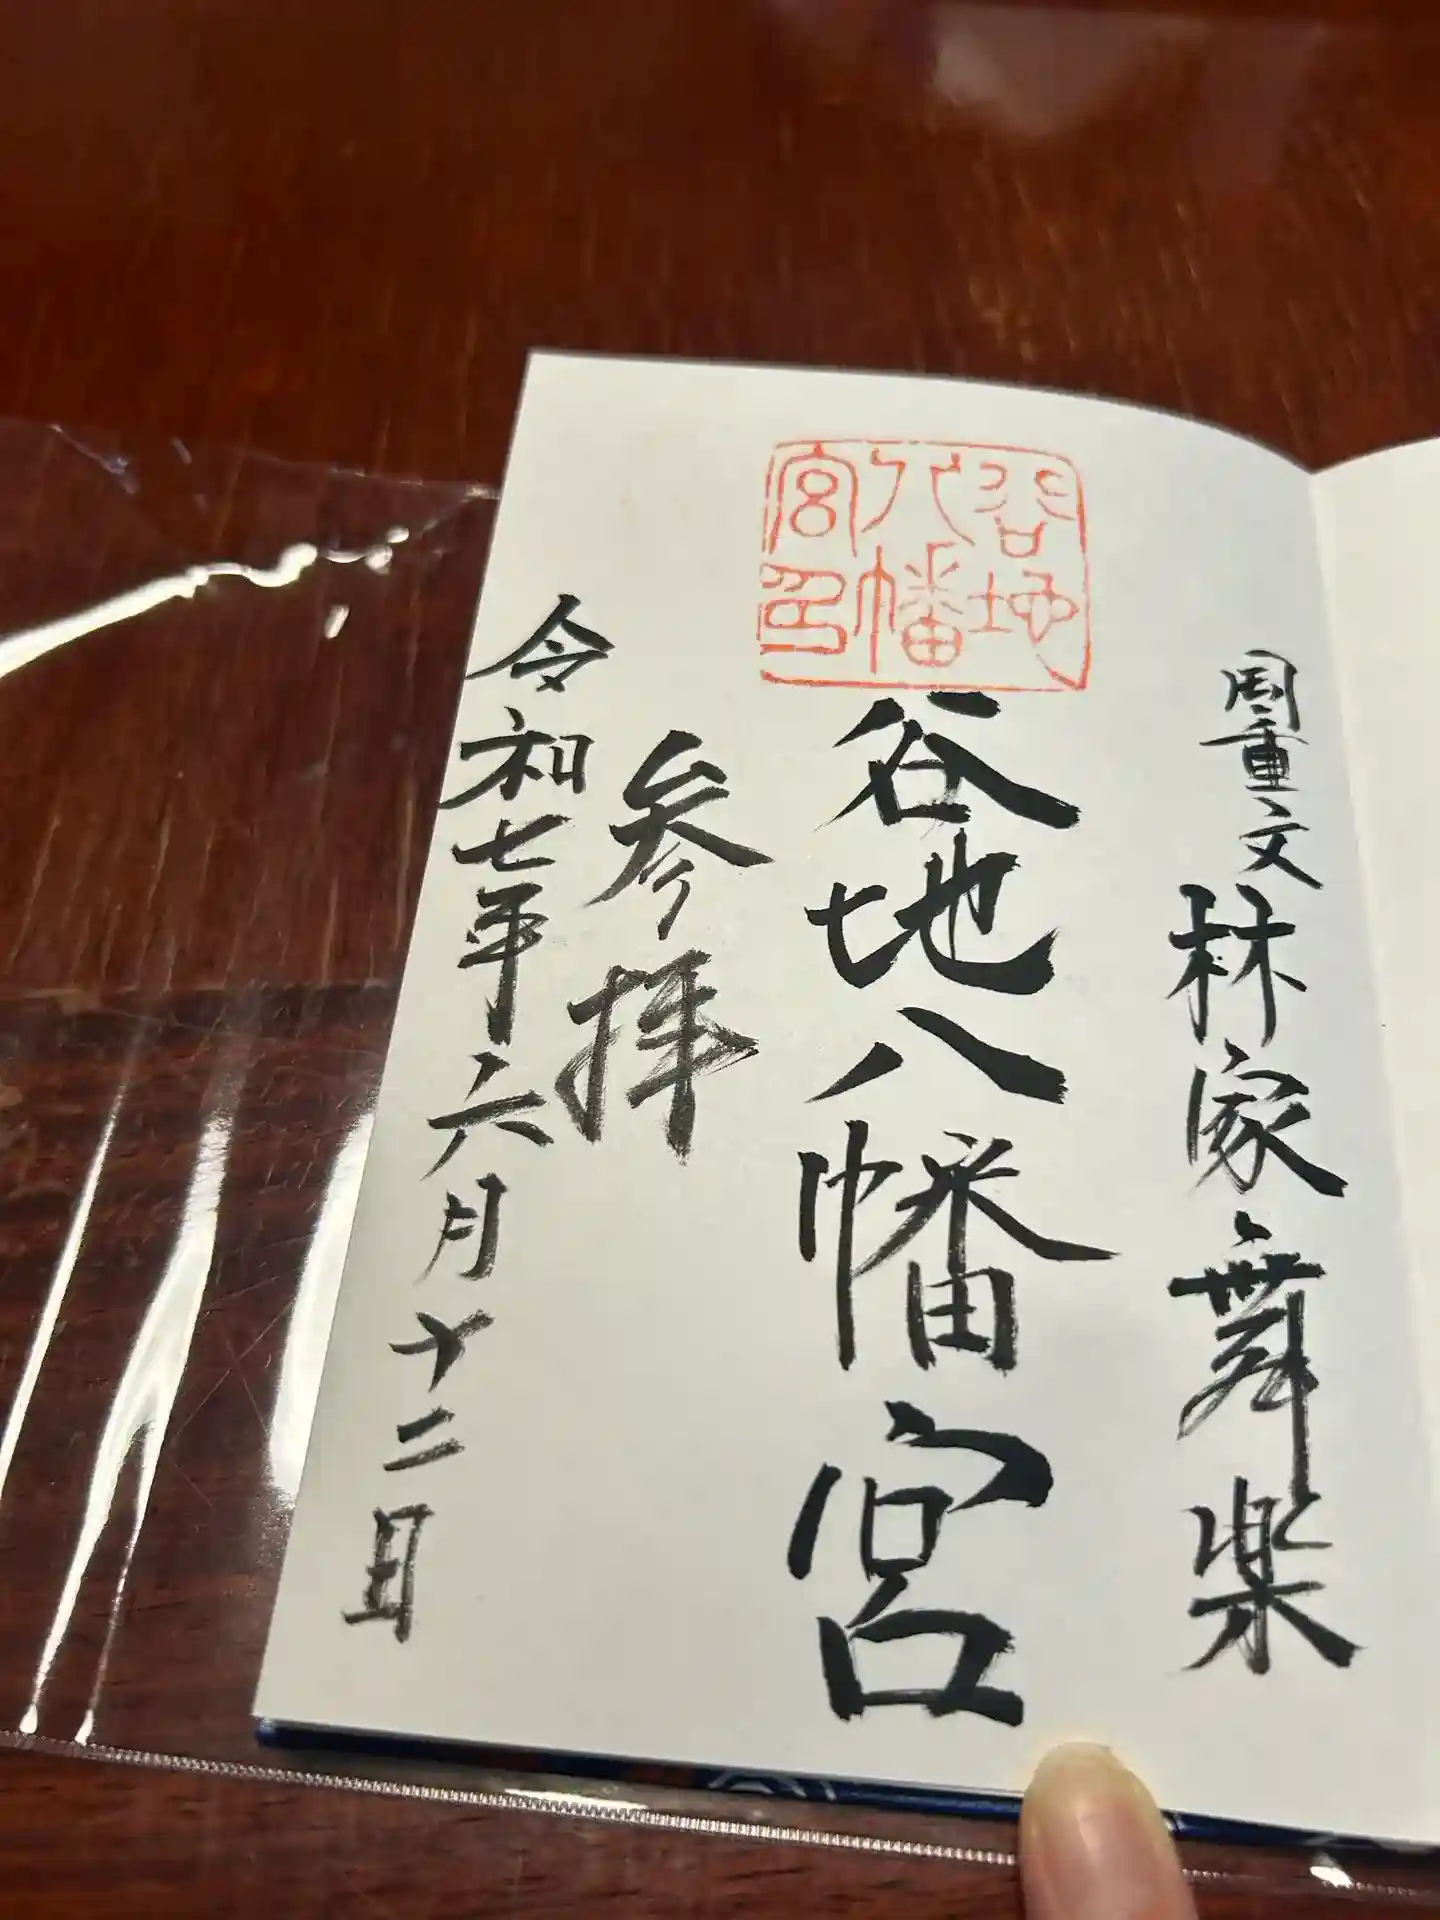 国重文 林家舞楽
谷地八幡宮印
谷地八幡宮
参拝
令和七年六月十二日